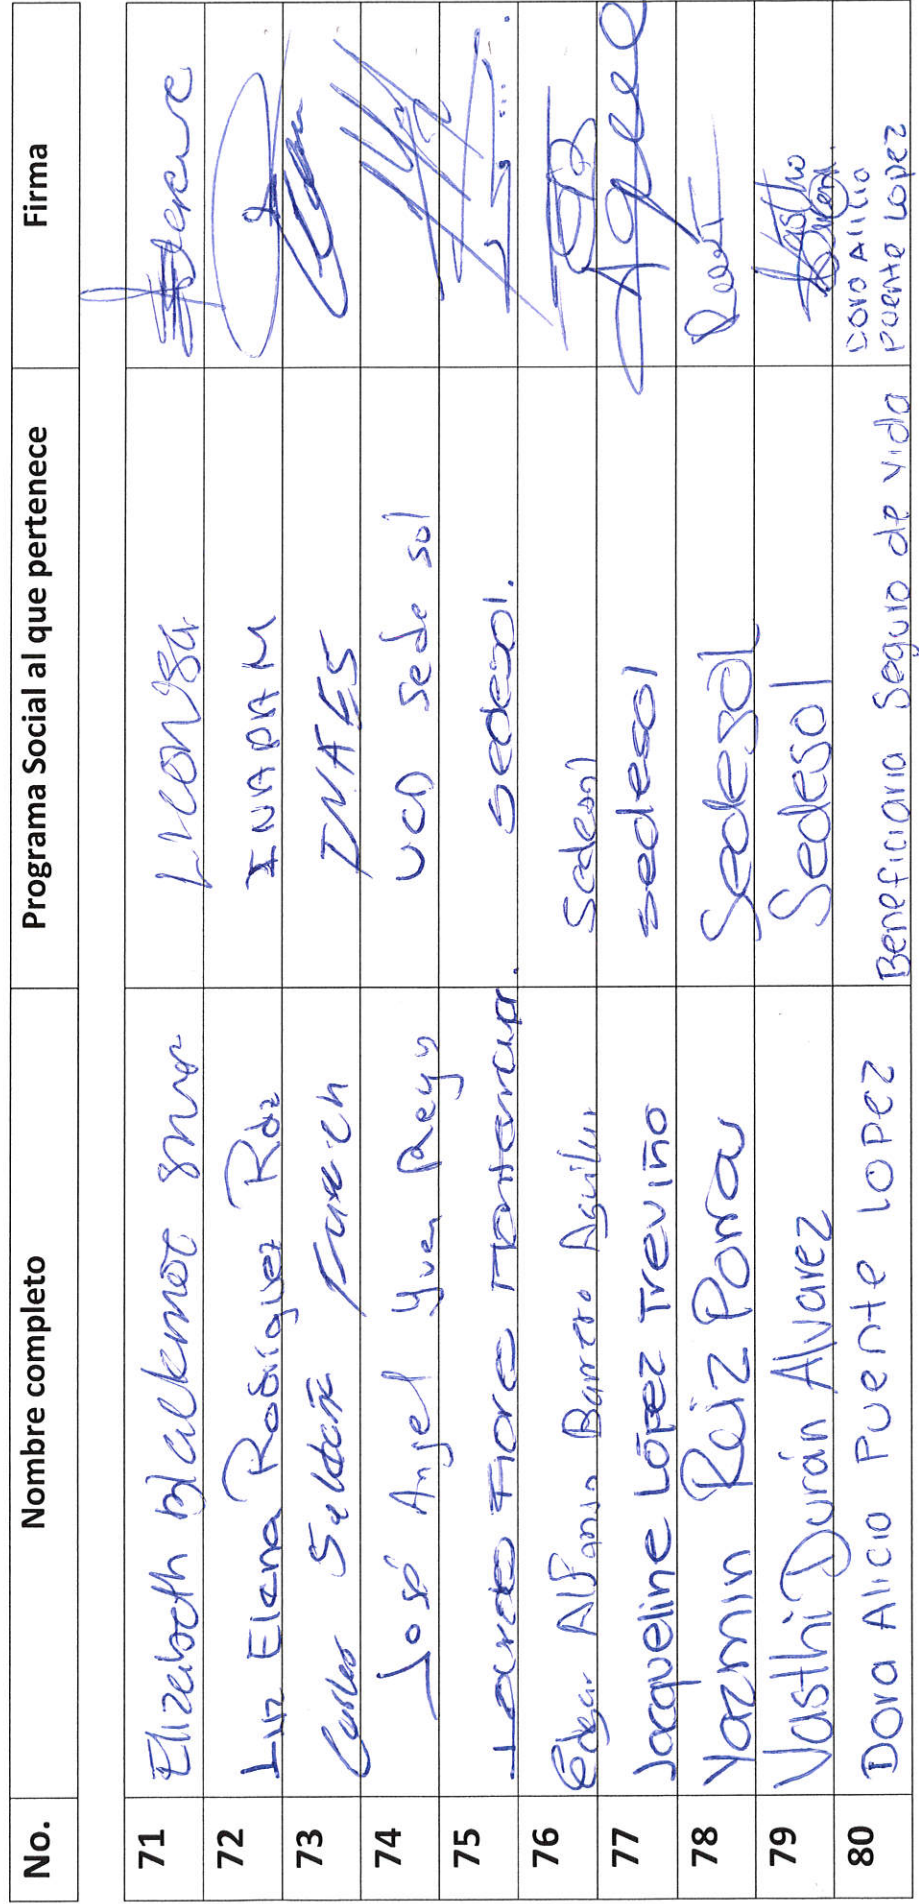 No. Nombre completo Programa Social al que pertenece Firma
71 Elizabeth Liconsa
72 Luz Elena Rodríguez Rdz INAPAM
73 Carlos INAES
74 José Angel Reyes UCD Sedesol
75 sedesol.
76 Edgar Alfonso Barrera Aguilar Sedesol
77 Jacqueline López Treviño sedesol
78 Yazmin Ruiz Porra Sedesol
79 Vasthi Durán Alvarez Sedesol
80 Dora Alicia Puente Lopez Beneficiaria Seguro de vida Dora Alicia
Puente Lopez